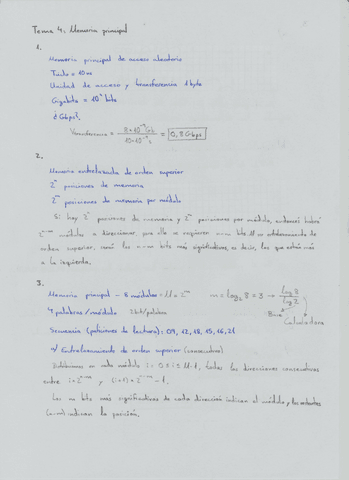 Tema 4: Memoria principal
1.
Memoria principal de acceso aleatorio
Tciclo = 10 ns
Unidad de acceso y transferencia 1 byte
Gigabits = 10⁹ bits
¿Gbps?
Vtransferencia = 8·10⁻⁹ Gb / 10·10⁻⁹ s = 0,8 Gbps
2.
Memoria entrelazada de orden superior
2ⁿ posiciones de memoria
2ᵐ posiciones de memoria por módulo
Si hay 2ⁿ posiciones de memoria y 2ᵐ posiciones por módulo, entonces habrá
2ⁿ⁻ᵐ módulos a direccionar, para ello se requieren n-m bits.
orden superior, serán los n-m bits más significativos, es decir, los que están más
a la izquierda.
3.
Memoria principal - 8 módulos = M = 2ᵐ m = log₂ 8 = 3 → log 8 / log 2
4 palabras/módulo Base Calculadora
Secuencia (peticiones de lectura): 09, 12, 18, 15, 16, 21
a) Entrelazamiento de orden superior (consecutivas)
Distribuimos en cada módulo i: 0 ≤ i ≤ M-1, todas las direcciones consecutivas
entre i·2ⁿ⁻ᵐ y (i+1)·2ⁿ⁻ᵐ - 1.
Los m bits más significativos de cada dirección indican el módulo, y los restantes
(n-m) indican la posición.